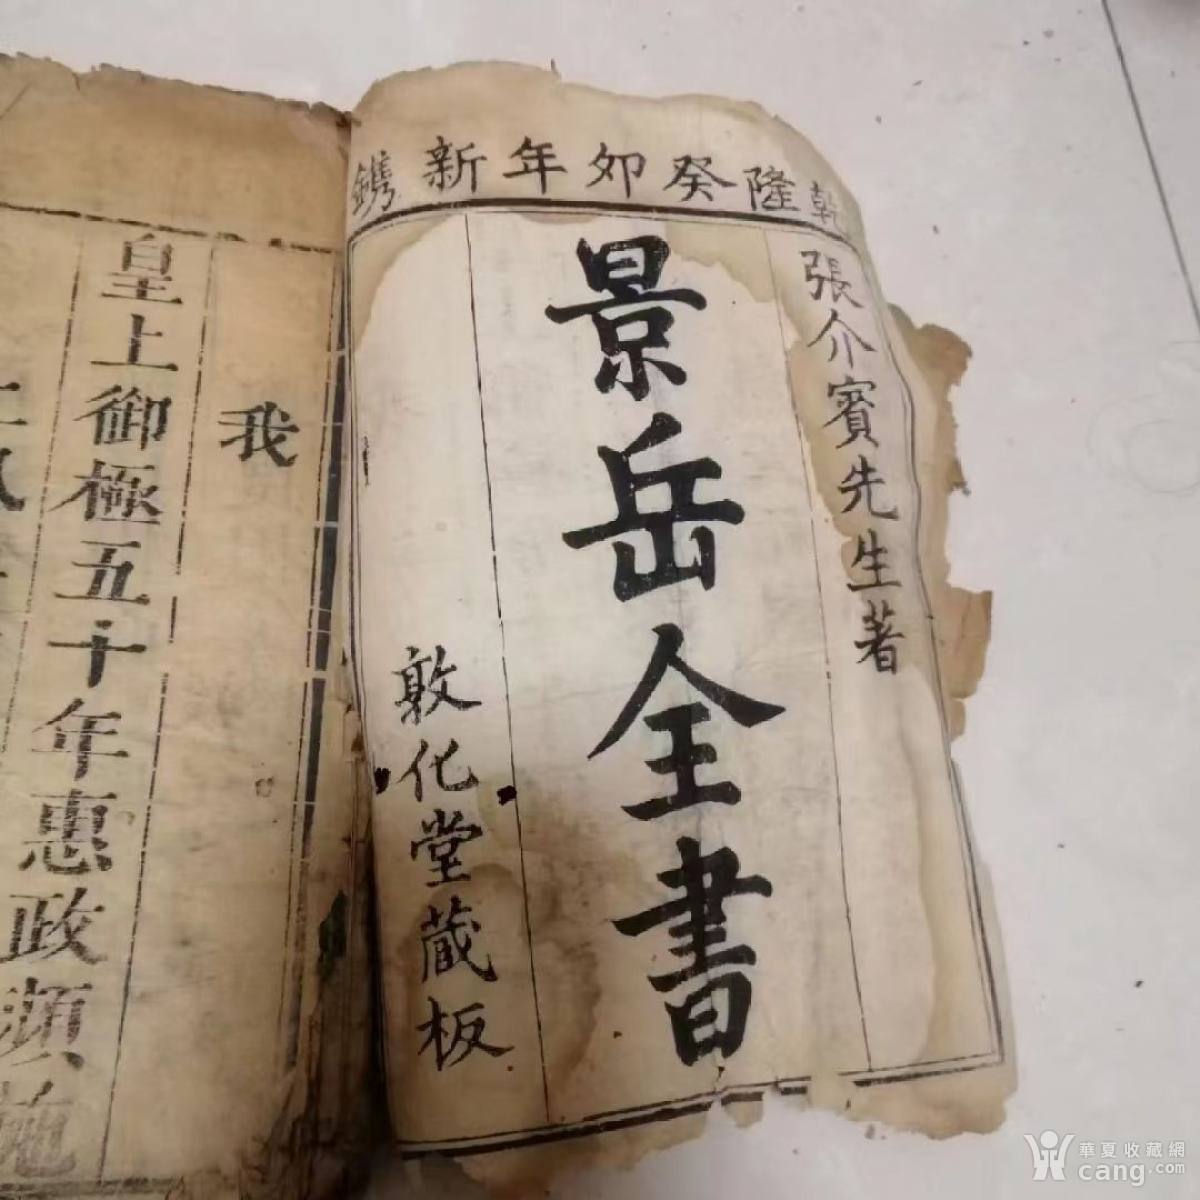 乾隆癸卯年新鐫
張介賓先生著
景岳全書
敦化堂藏板
我
皇上御極五十年惠政頻施
華夏收藏網
cang.com